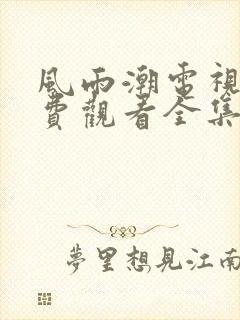 風雨潮電視
費觀看全集
夢里想見江南